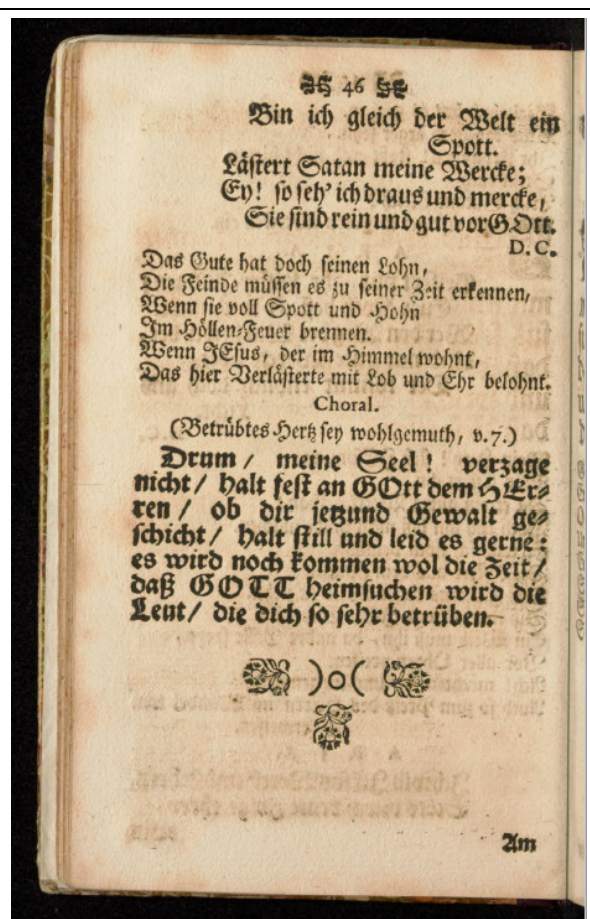 46
Bin ich gleich der Welt ein
Spott.
Lästert Satan meine Wercke;
Ey! so seh' ich draus und mercke,
Sie sind rein und gut vor GOtt.
D. C.
Das Gute hat doch seinen Lohn,
Die Feinde müssen es zu seiner Zeit erkennen,
Wenn sie voll Spott und Hohn
Im Höllen-Feuer brennen.
Wenn JEsus, der im Himmel wohnt,
Das hier Verlästerte mit Lob und Ehr belohnt.
Choral.
(Betrübtes Hertz sey wohlgemuth, v. 7.)
Drum / meine Seel! verzage
nicht / halt fest an GOtt dem HEr-
ren / ob dir jetzund Gewalt ge-
schicht / halt still und leid es gerne:
es wird noch kommen wol die Zeit /
daß GOTT heimsuchen wird die
Leut / die dich so sehr betrüben.
)o(
Am